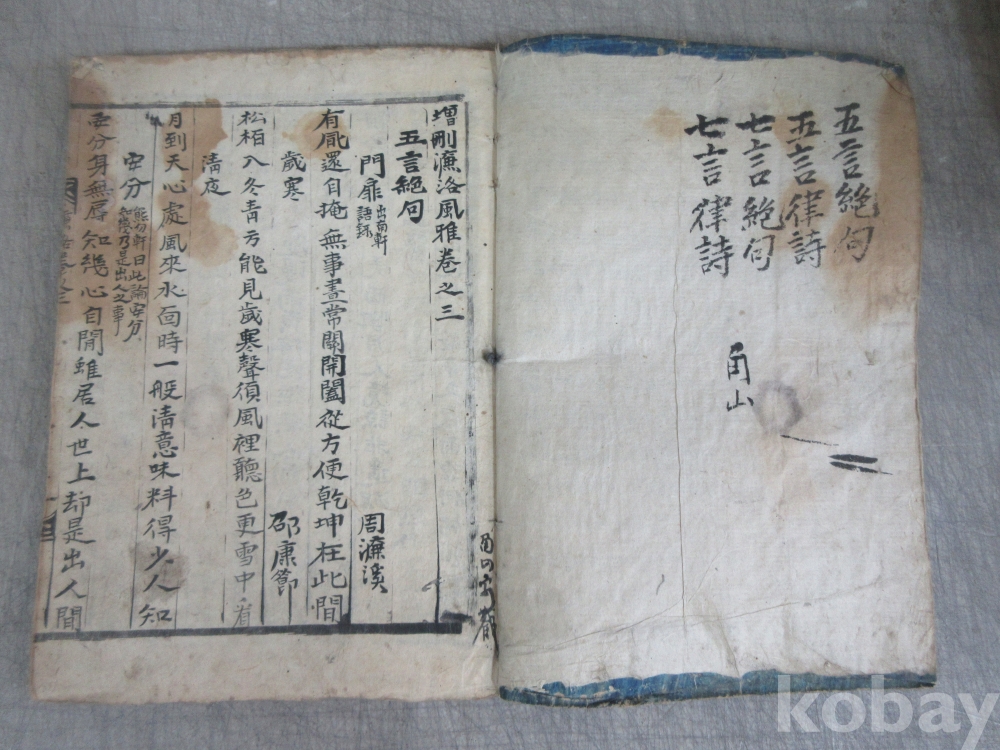 五言絶句
五言律詩
七言絶句
七言律詩
角山
增刪濂洛風雅卷之三
五言絶句
門扉 出南軒語録 周濂溪
有風還自掩無事晝常關開闔從方便乾坤在此間
歲寒 邵康節
松栢入冬青方能見歲寒聲須風裡聽色更雪中看
清夜
月到天心處風來水面時一般清意味料得少人知
安分 熊勿軒曰此論安分知幾乃是出人之事
安分身無辱知幾心自閒雖居人世上却是出人間
kobay